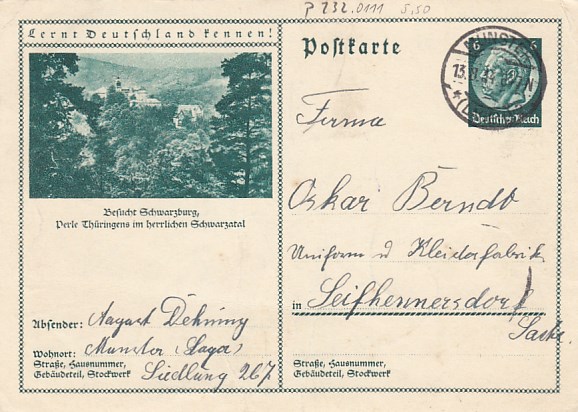 P 232.0111 5,50
Lernt Deutschland kennen!
Postkarte
6 6
Deutsches Reich
Besucht Schwarzburg,
Perle Thüringens im herrlichen Schwarzatal
Firma
Oskar Berndt
Uniform u Kleiderfabrik
in Seifhennersdorf
Absender: August
Wohnort: Munster (Lager)
Straße, Hausnummer,
Gebäudeteil, Stockwerk
Siedlung 267
Straße, Hausnummer,
Gebäudeteil, Stockwerk